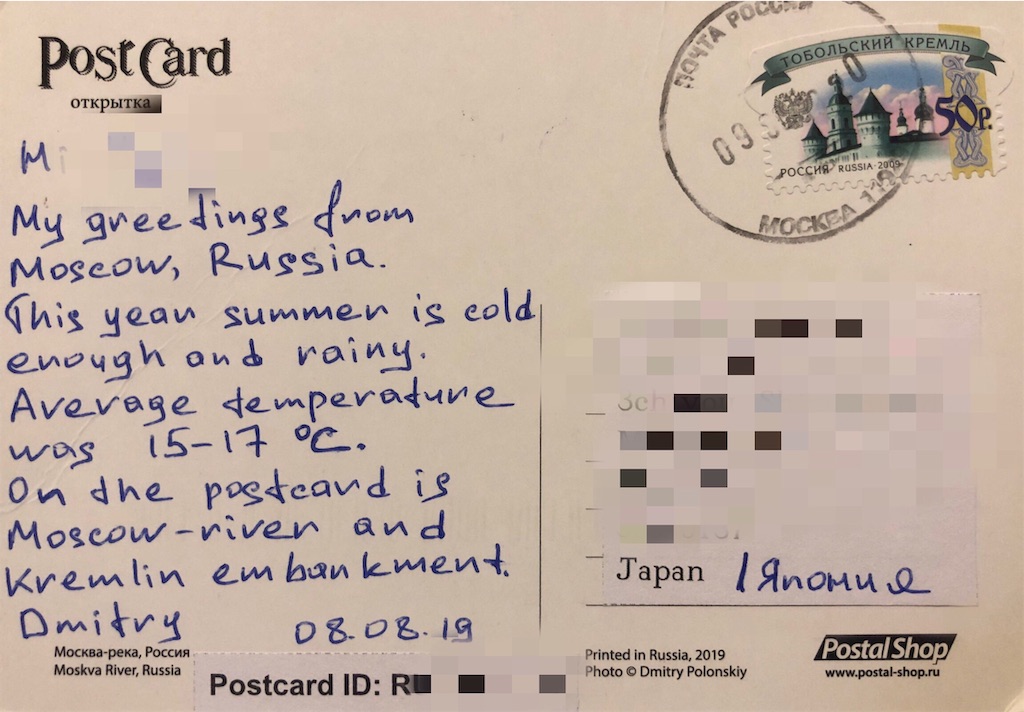 PostCard
открытка
My greetings from
Moscow, Russia.
This year summer is cold
enough and rainy.
Average temperature
was 15-17 °C.
On the postcard is
Moscow-river and
Kremlin embankment.
Dmitry 08.08.19
Москва-река, Россия
Moskva River, Russia
Postcard ID: R
ПОЧТА РОССИИ
МОСКВА
09
ТОБОЛЬСКИЙ КРЕМЛЬ
50р.
РОССИЯ RUSSIA·2009
Japan / Япония
Printed in Russia, 2019
Photo © Dmitry Polonskiy
Postal Shop
www.postal-shop.ru